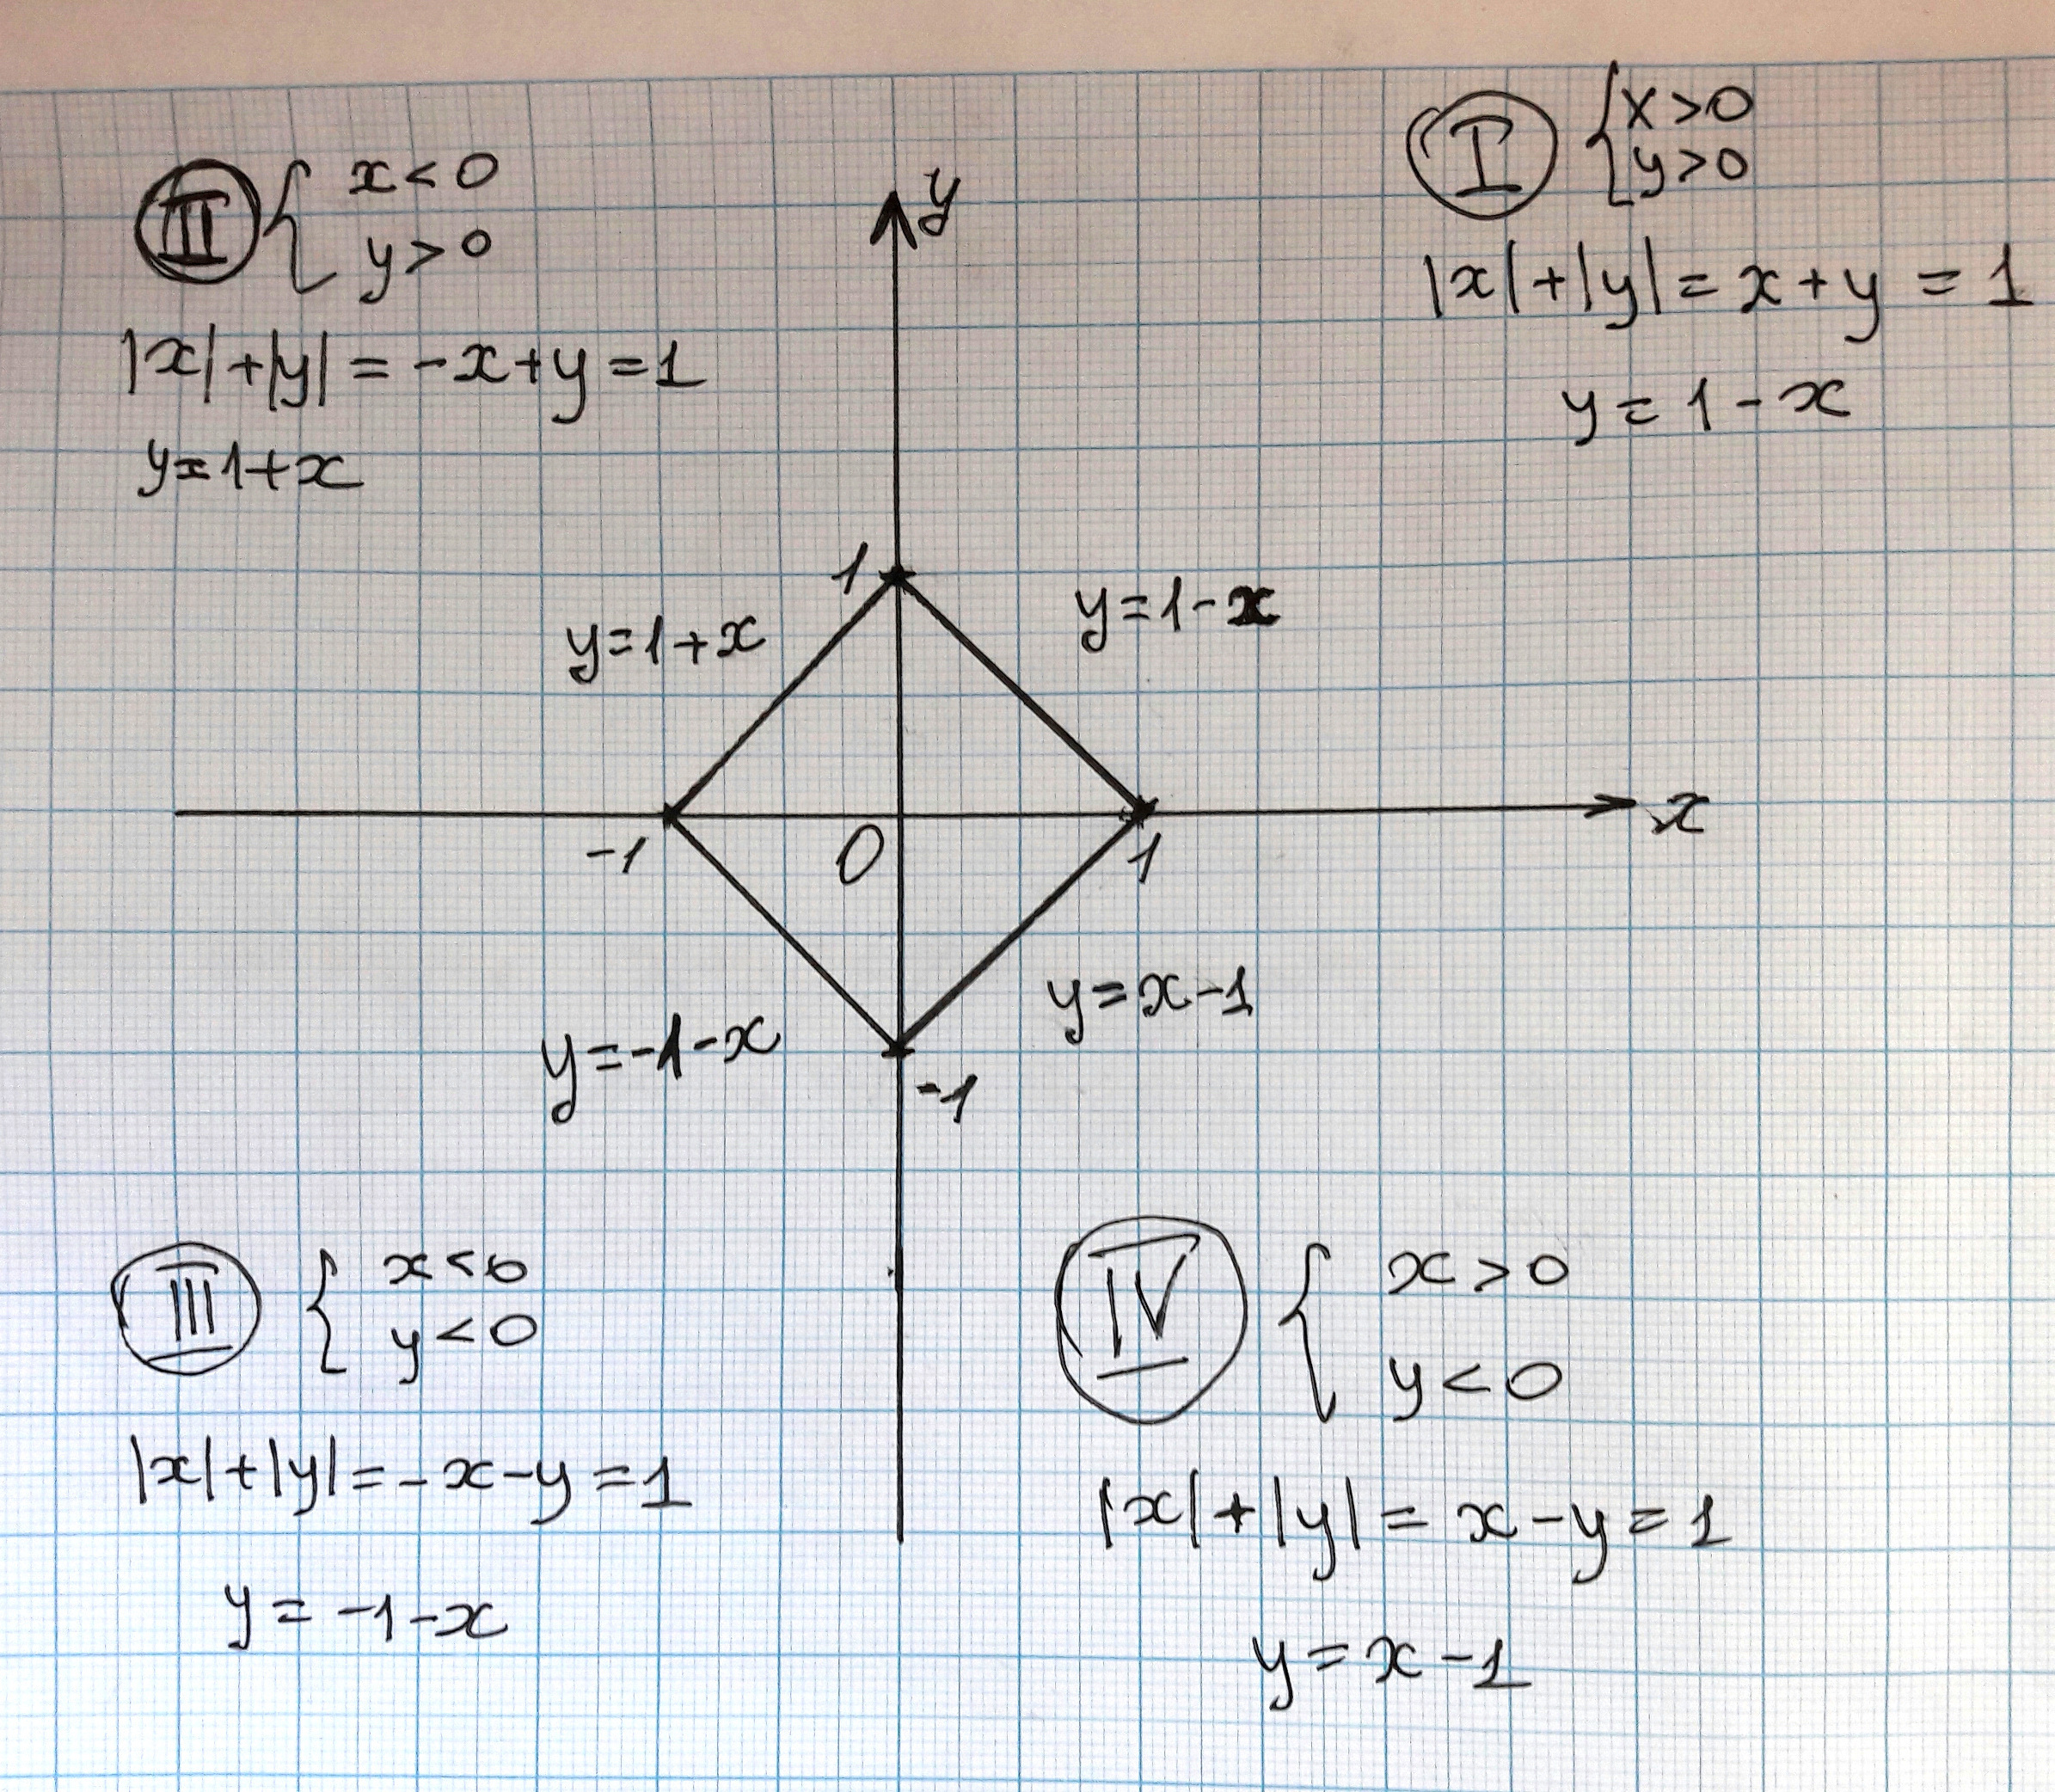 II { x < 0
y > 0
|x| + |y| = -x + y = 1
y = 1 + x
I { x > 0
y > 0
|x| + |y| = x + y = 1
y = 1 - x
y
1
y = 1 + x
y = 1 - x
x
-1
0
1
y = -1 - x
y = x - 1
-1
III { x < 0
y < 0
|x| + |y| = -x - y = 1
y = -1 - x
IV { x > 0
y < 0
|x| + |y| = x - y = 1
y = x - 1